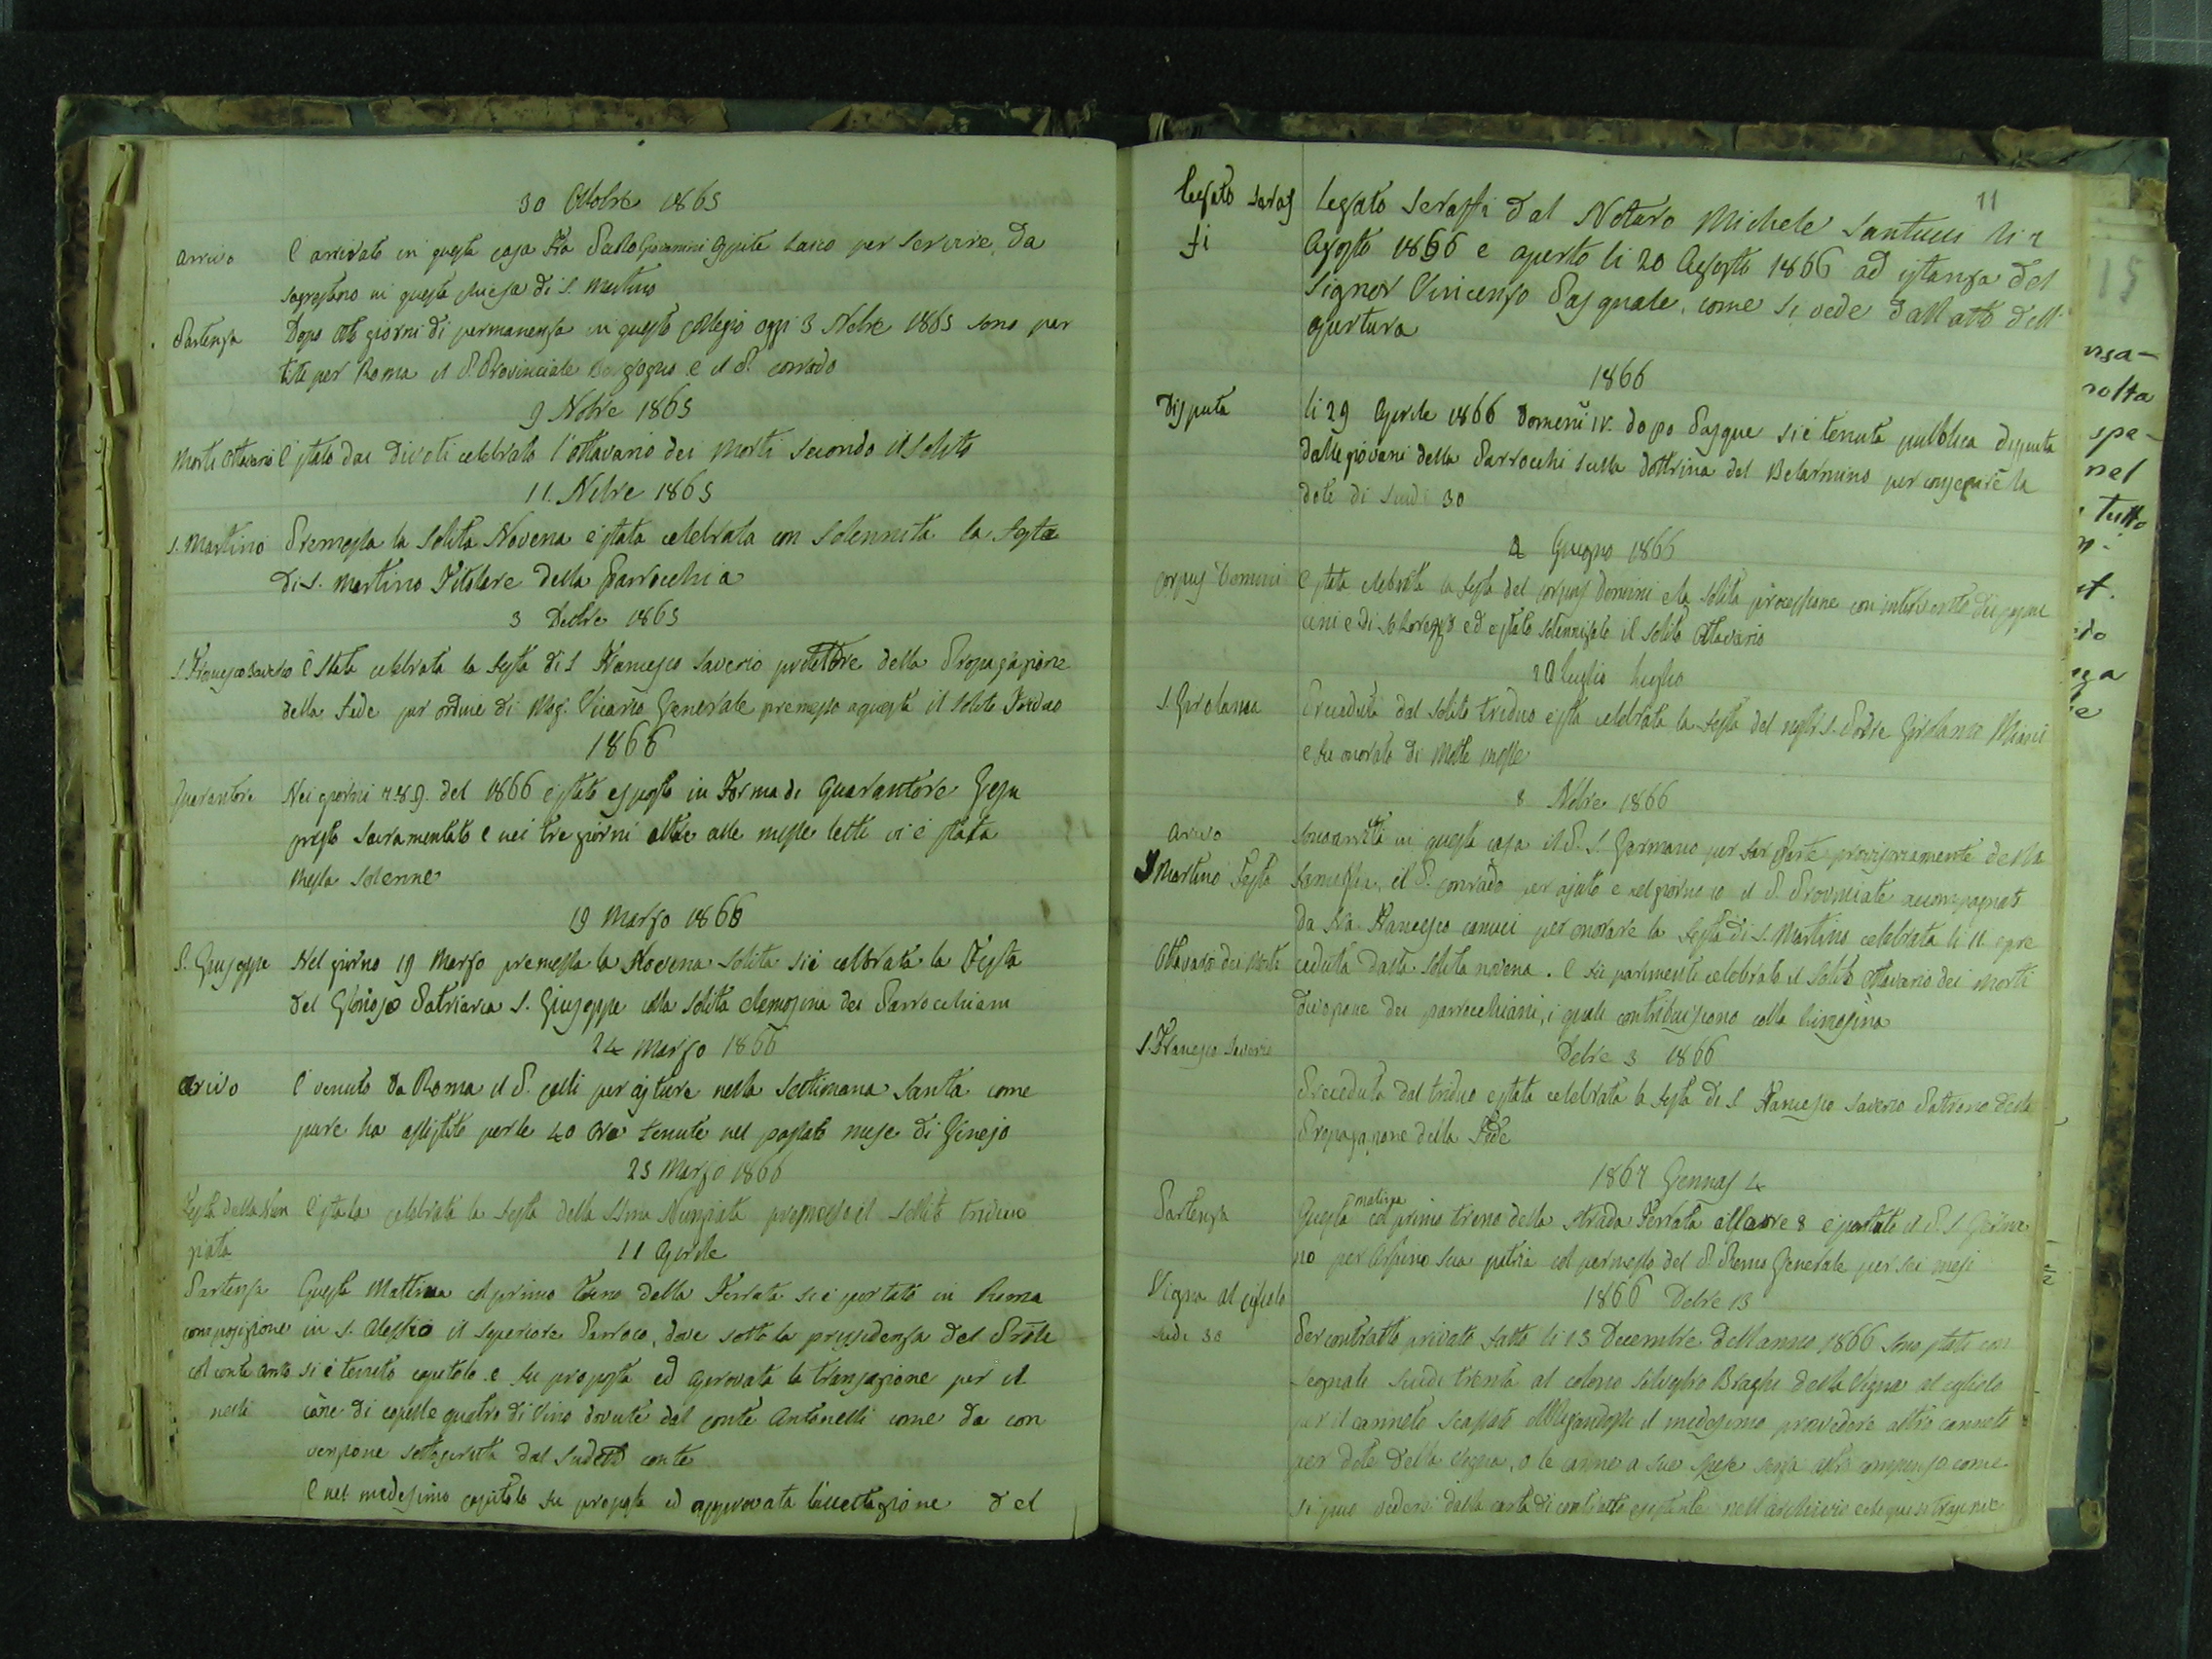 30 Ottobre 1865
Arrivo È arrivato in questa casa Fra Paolo Giovannini Ospite Laico per servire da
sagrestano in questa chiesa di S. Martino
Partenza Dopo otto giorni di permanenza in questo Collegio oggi 3 Nobre 1865 sono par
titi per Roma il P. Provinciale Borgogno e il P. Corrado
9 Nobre 1865
Morti Ottavario È stato dai divoti celebrato l'ottavario dei Morti secondo il solito
11. Nobre 1865
S. Martino Premessa la solita Novena è stata celebrata con solennità la festa
di S. Martino Titolare della Parrocchia
3 Decbre 1865
S. Francesco Saverio È stata celebrata la festa di S Francesco Saverio protettore della Propagazione
della Fede per ordine di Mog. Vicario Generale premesso a questa il solito Triduo
1866
Quarantore Nei giorni 7.8.9. del 1866 è stato esposto in Forma di Quarantore Gesu
Cristo Sacramentato e nei tre giorni oltre alle messe lette vi è stata
Messa solenne
19 Marzo 1866
S. Giuseppe Nel giorno 19 Marzo premessa la Novena solita si è celbrata la Festa
del Glorioso Patriarca S. Giuseppe colla solita elemosina dei Parrocchiani
24 Marzo 1866
Arivo È venuto da Roma il P. Celli per ajutare nella Settimana Santa come
pure ha assistito per le 40 Ore tenute nel passato mese di Genajo
25 Marzo 1866
Festa della Nun È stata celebrata la festa della SSma Nunziata premesso il solito triduo
ziata
11 Aprile
Partenza Questa Mattina col primo Treno della Ferrata si è portato in Roma
composizione in S. Alessio il Superiore Parroco, dove sotto la presidenza del Prõle
col conte Anto si è tenuto capitolo e fu proposta ed aprovata la transazione per il
nelli canone di cupelle quatro di vino dovute dal conte Antonelli come da con
venzione sottoscritta dal sudetto conte
E nel medesimo capitolo fu proposta ed approvata l'accettazione del
11
Legato Seraf Legato Seraffi dal Notaro Michele Santucci li 7
fi Agosto 1866 e aperto li 20 Agosto 1866 ad istanza del
Signor Vincenzo Pasquale, come si vede dall atto dell'
apertura
1866
Disputa li 29 Aprile 1866 Domeni IV. dopo Pasqua si è tenuta pubblica disputa
dalle giovani della Parrocchi sulla dottrina del Belarmino per conseguire la
dote di scudi 30
2 Giugno 1866
Corpus Domini È stata celebrata la festa del Corpus Domini e la solita processione con intervento dei Cappuc
cini e di S. Lorenzo ed è stato solennizato il solito Ottavario
20 luglio luglio
S. Girolamo Preceduta dal solito triduo è sta celebrata la festa del nostr S. Padre Girolamo Miani
e fu onorata di molte messe
8 Nobre 1866
Arivo Sono arrivti in questa casa il P. S. Germano per far parte provisoriamente della
S Martino Festa Famiglia, il P. Corrado per ajuto e nel giorno 10 il P. Provinciale accompagnato
da Fra Francesco Camuci per onorare la festa di S. Martino celebrata li 11. e pre
Ottavario dei Morti ceduta dalla solita novena. E fu parimente celebrato il solito Ottavario dei Morti
divozione dei parrocchiani, i quali contribuiscono colla limosina
S Francesco Saverio Debre 3 1866
Preceduta dal triduo è stata celebrata la festa di S Francesco Saverio Patrono della
Propagazione della Fede
1867 Gennaj 4
Partenza Questa matina col primo treno della strada Ferrata alla ore 8 è partito il P. S. Germa
no per Arpino sua patria col permesso del P. Remo Generale per sei mesi
1866 Debre 13
Vigna al ciglioto
scudi 30 Per contratto privato fatto li 13 Decembre dell anno 1866 sono stati con
segnati scudi trenta al colono Silvestro Braghi della Vigna al ciglioto
per il canneto scassato obbligandosi il medesimo provedere altro canneto
per dote della vigna, o le canne a sue spese senza altro compenso come
si può vedersi dalla carta di contratto esistente nell archivio